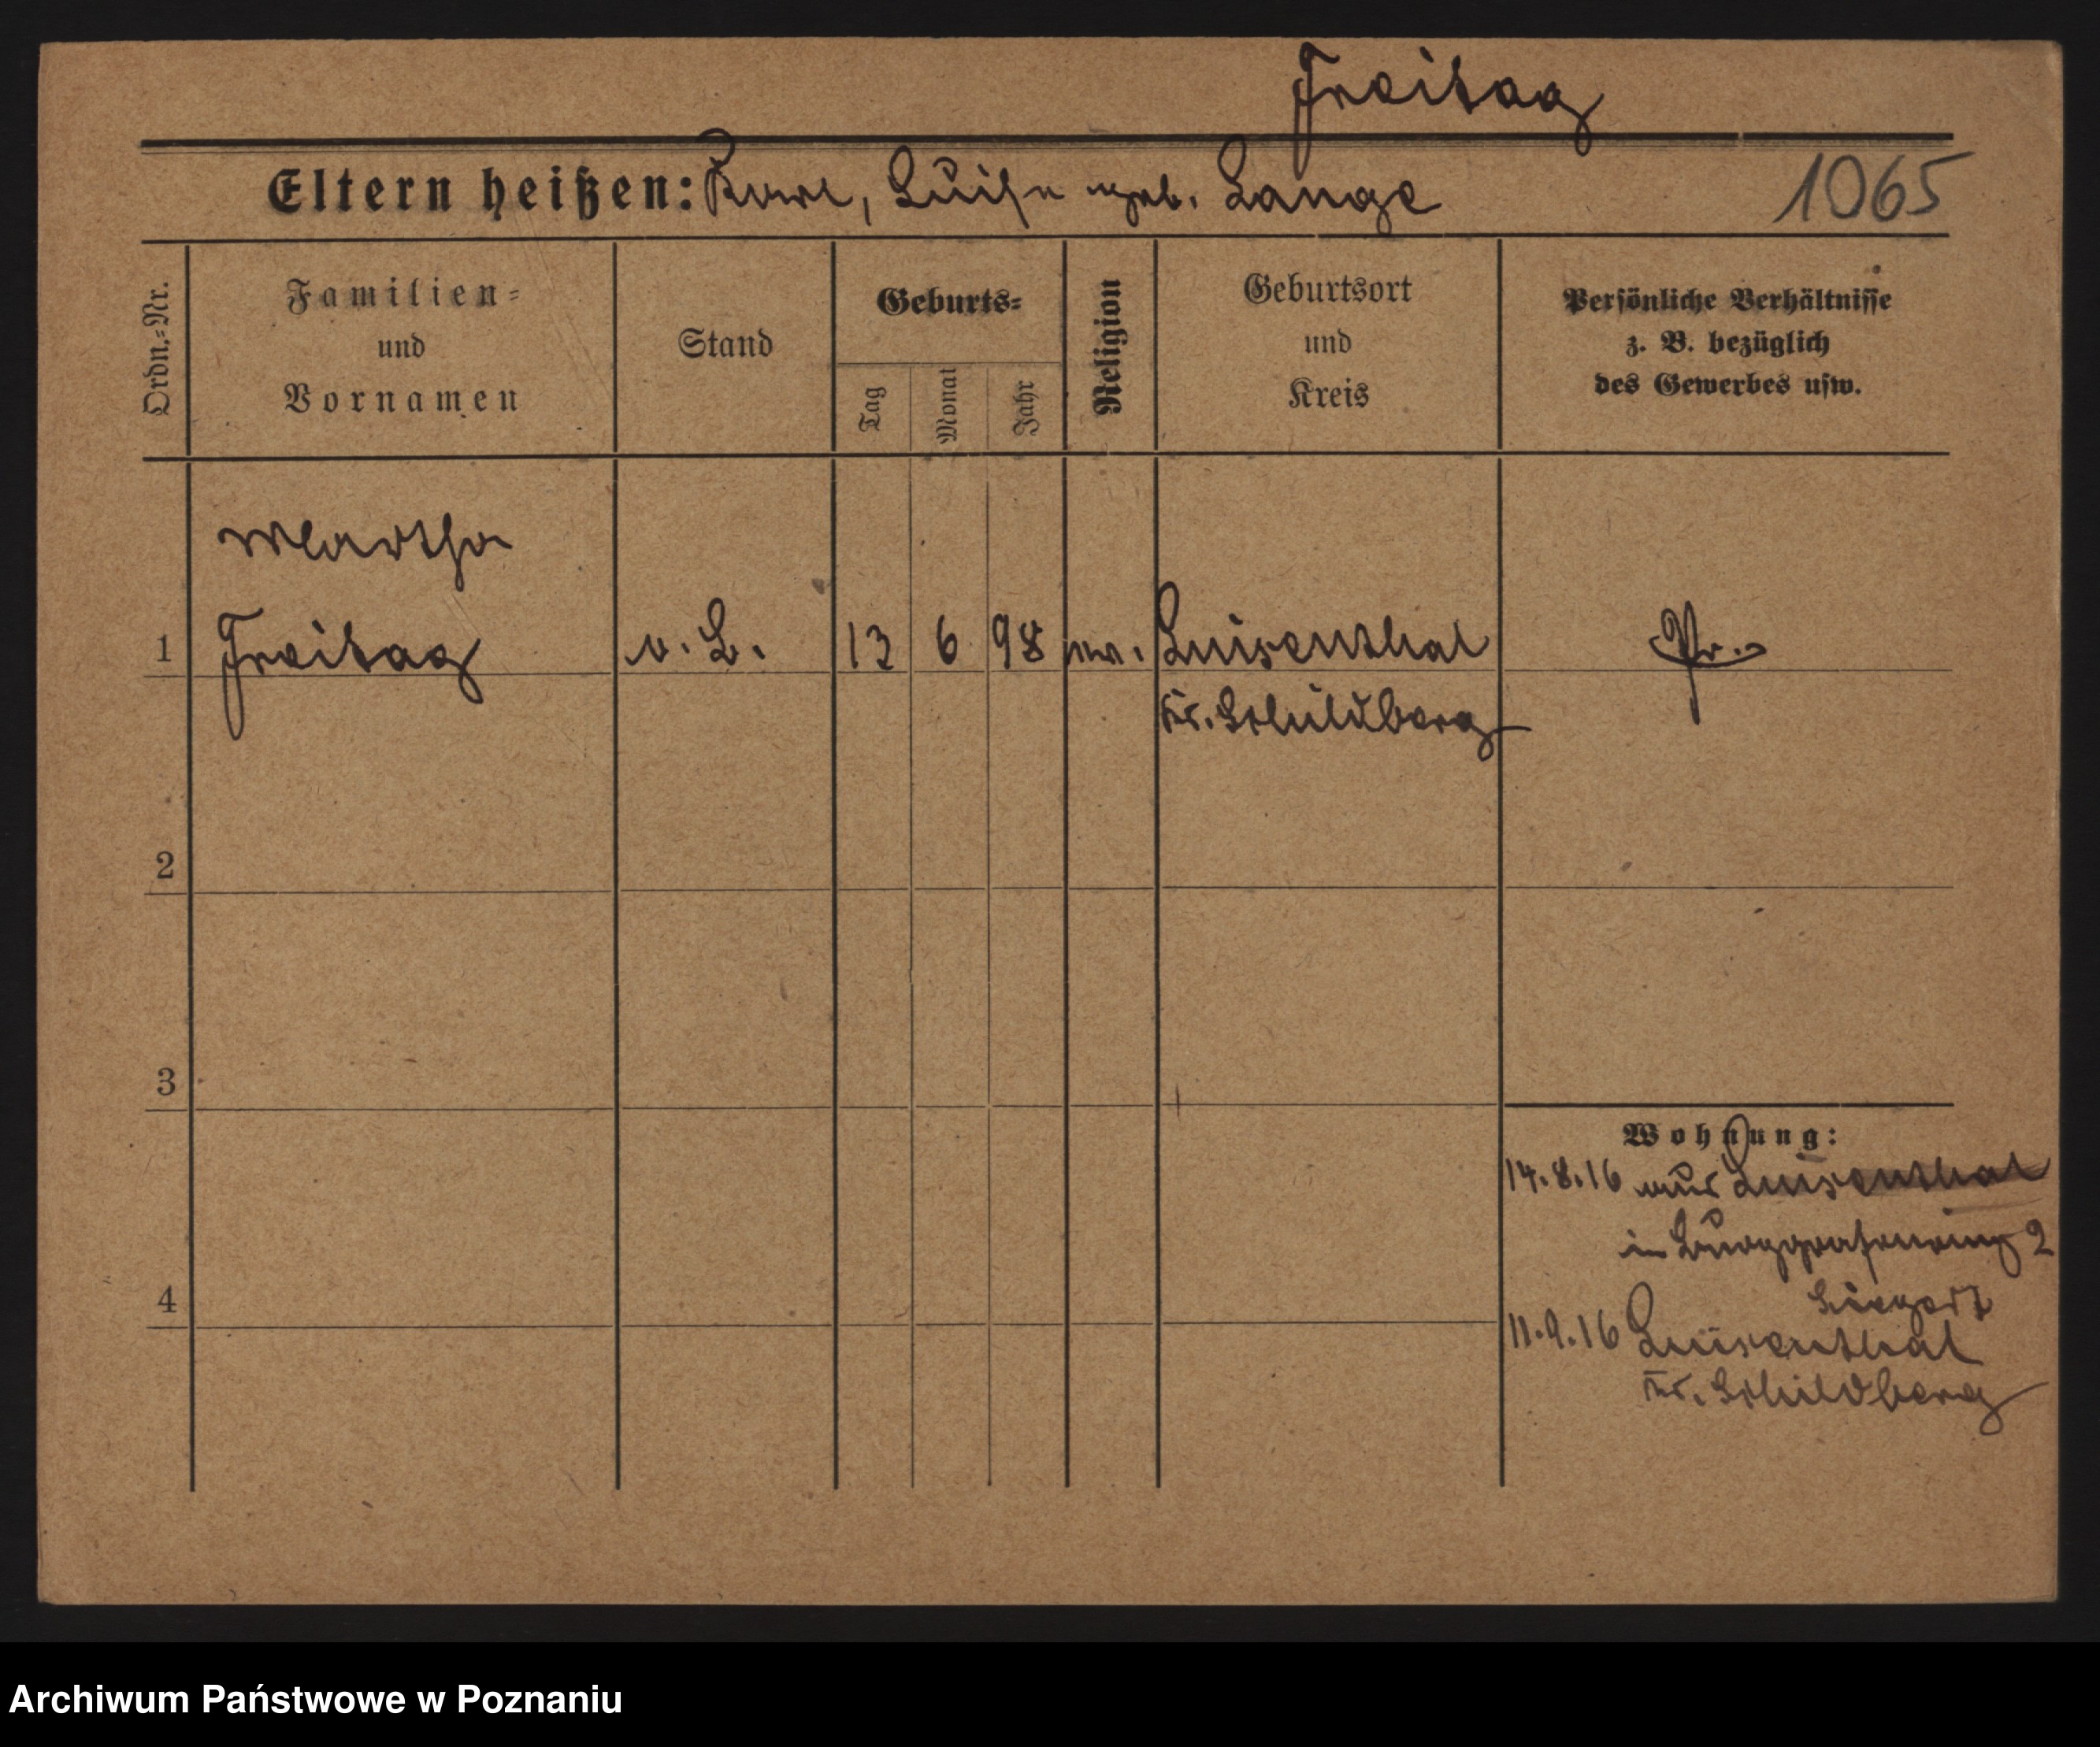 Freitag
Eltern heißen: Karl, Luise geb. Lange
1065
Ordn.=Nr.
Familien=
und
Vornamen
Stand
Geburts=
Tag
Monat
Jahr
Religion
Geburtsort
und
Kreis
Persönliche Verhältnisse
z. B. bezüglich
des Gewerbes usw.
Martha
1 Freitag 13 6 98 Luisenthal Pr.
Kr. Schildberg
2
3
Wohnung:
14.8.16 aus Luisenthal
in Burggrafenring 2
4
11.9.16 Luisenthal
Kr. Schildberg
Archiwum Państwowe w Poznaniu